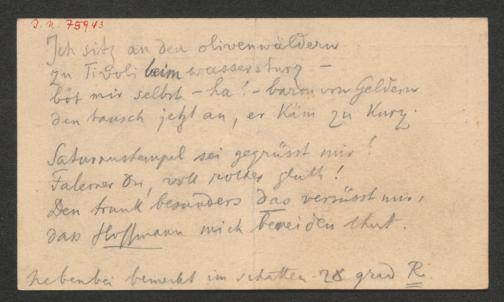 J. N. 75943
Ich sitz an den olivenwäldern
zu Tivoli beim wassersturz –
böt mir selbst – ha! – baron von Geldern
den tausch jetzt an, er käm zu kurz.
Saturnustempel sei gegrüsst mir!
Falerner du, voll glutt!
Den trunk besonders das versüsst mir,
dass Hoffmann mich beneiden thut.
nebenbei bemerkt im schatten 28 grad R.